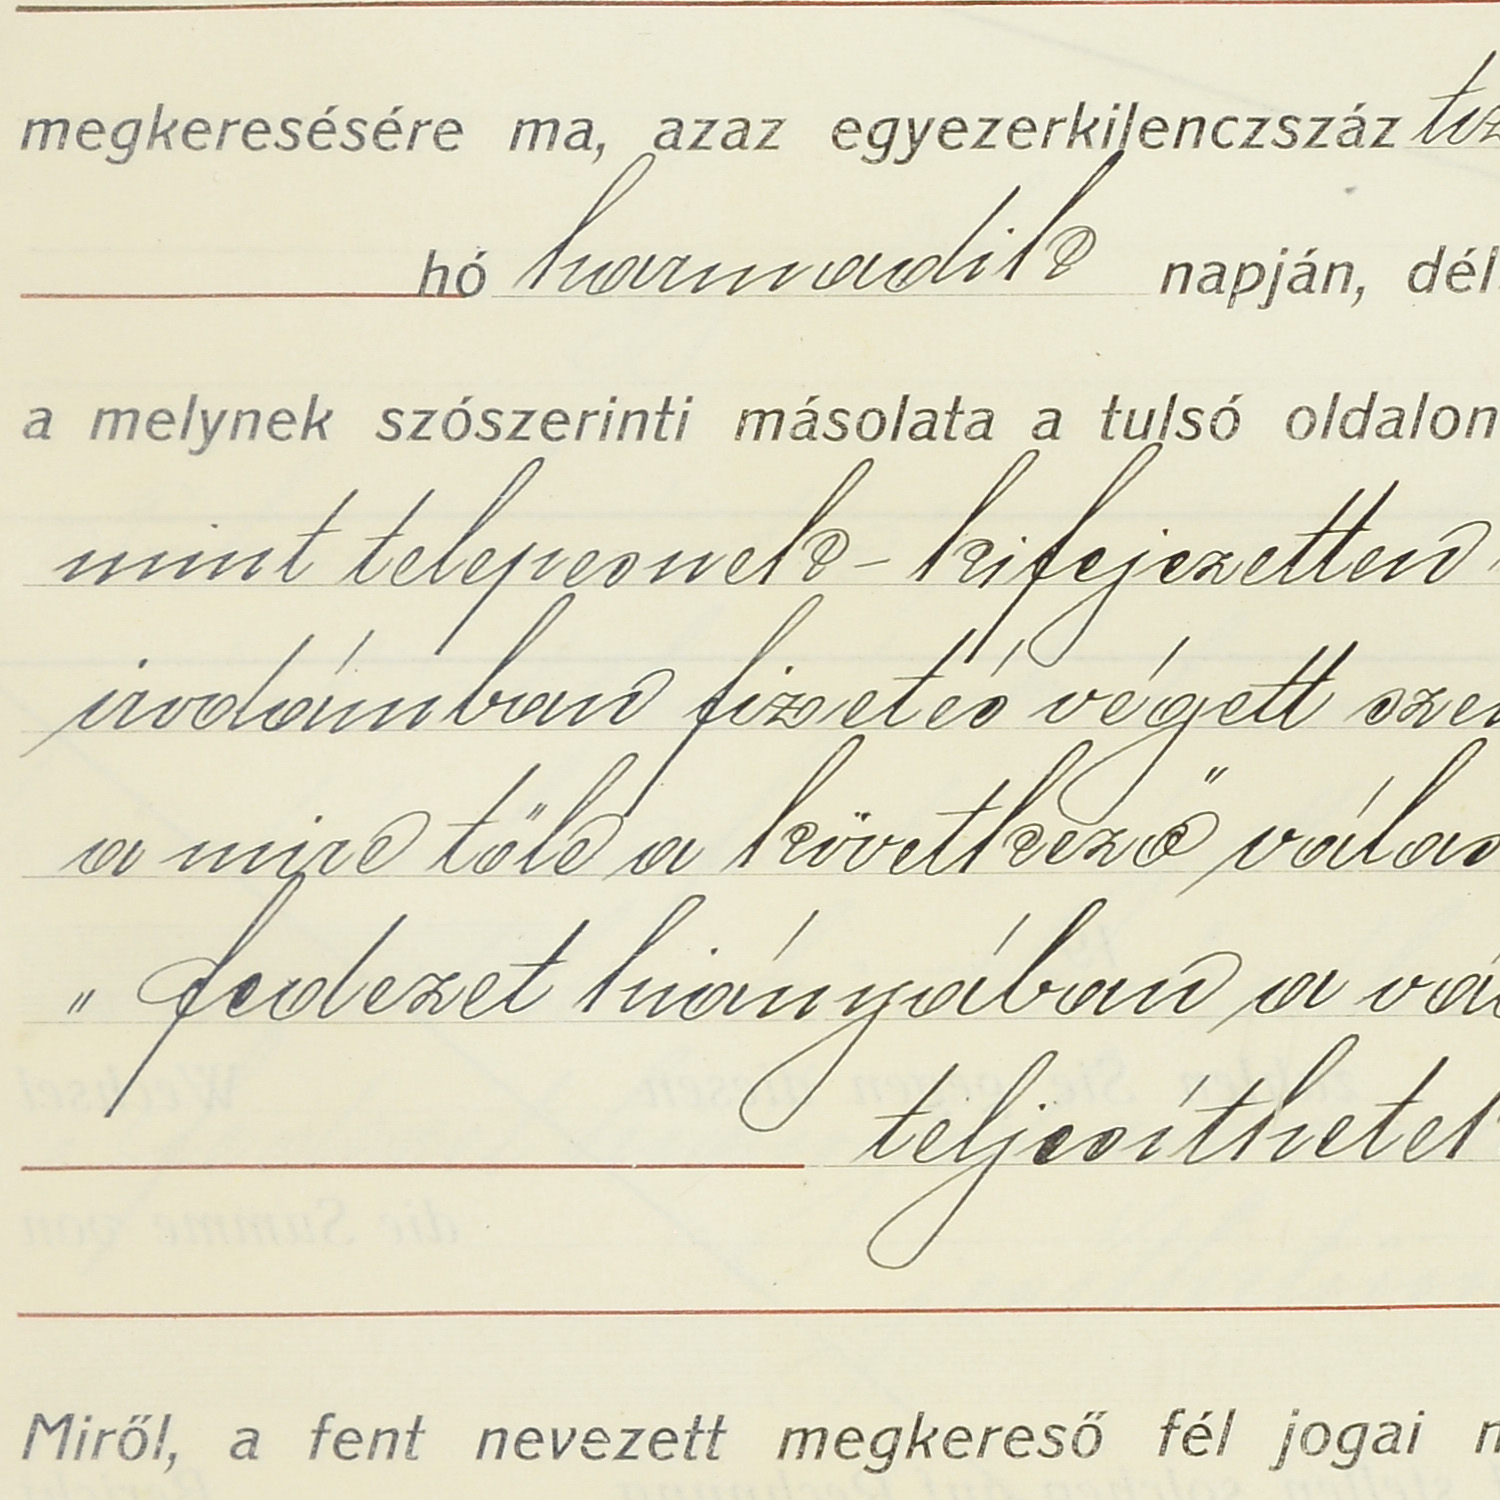 megkeresésére ma, azaz egyezerkilenczszáz tiz
hó harmadik napján, dél
a melynek szószerinti másolata a tulsó oldalon
mint telepesnek - kifejezetten
irodámban fizetés végett szem
a mire tőle a következő válas
" fedezet hiányában a vá
teljesíthetek
Miről, a fent nevezett megkereső fél jogai m